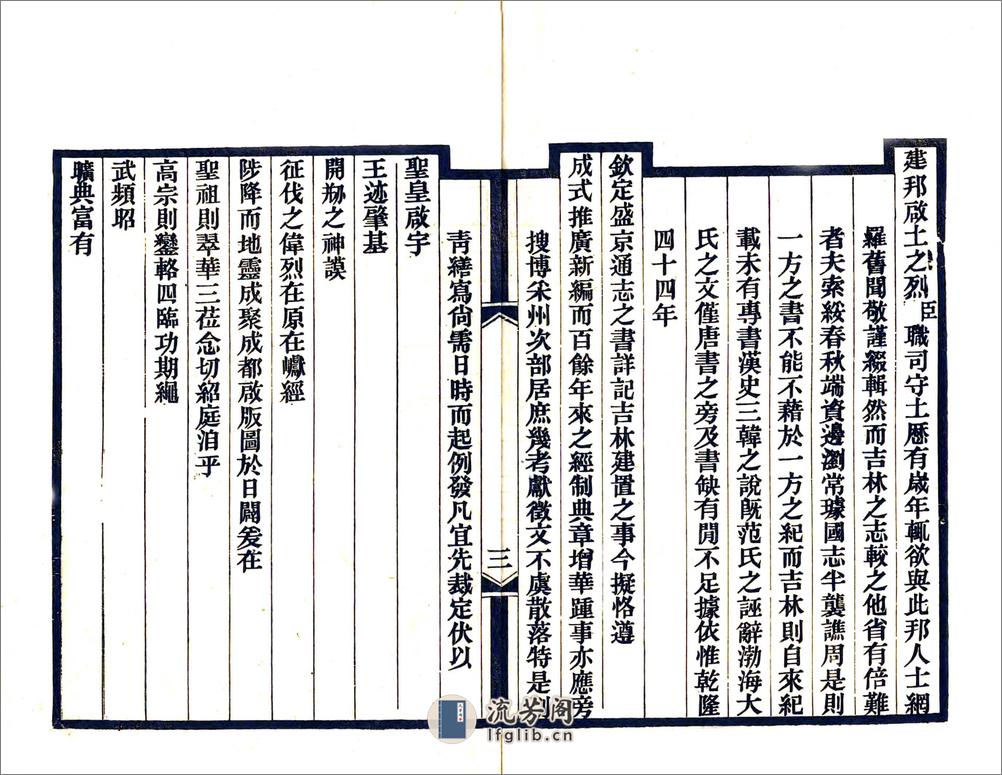 建邦啟土之烈臣職司守土歷有歲年輒欲與此邦人士網
羅舊聞敬謹綴輯然而吉林之志較之他省有倍難
者夫索綏春秋端資邊瀏常璩國志半襲譙周是則
一方之書不能不藉於一方之紀而吉林則自來紀
載未有專書漢史三韓之說既范氏之誣辭渤海大
氏之文僅唐書之旁及書缺有閒不足據依惟乾隆
四十四年
欽定盛京通志之書詳記吉林建置之事今擬恪遵
成式推廣新編而百餘年來之經制典章增華踵事亦應旁
搜博采州次部居庶幾考獻徵文不虞散落特是
三
青繕寫尙需日時而起例發凡宜先裁定伏以
聖皇啟宇
王迹肇基
開剏之神謨
征伐之偉烈在原在巘經
陟降而地靈成聚成都啟版圖於日闢爰在
聖祖則翠華三莅念切紹庭洎乎
高宗則鑾輅四臨功期繩
武頻昭
曠典富有
流芳阁
lfglib.cn